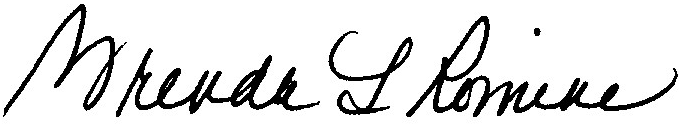 Brenda L Romine